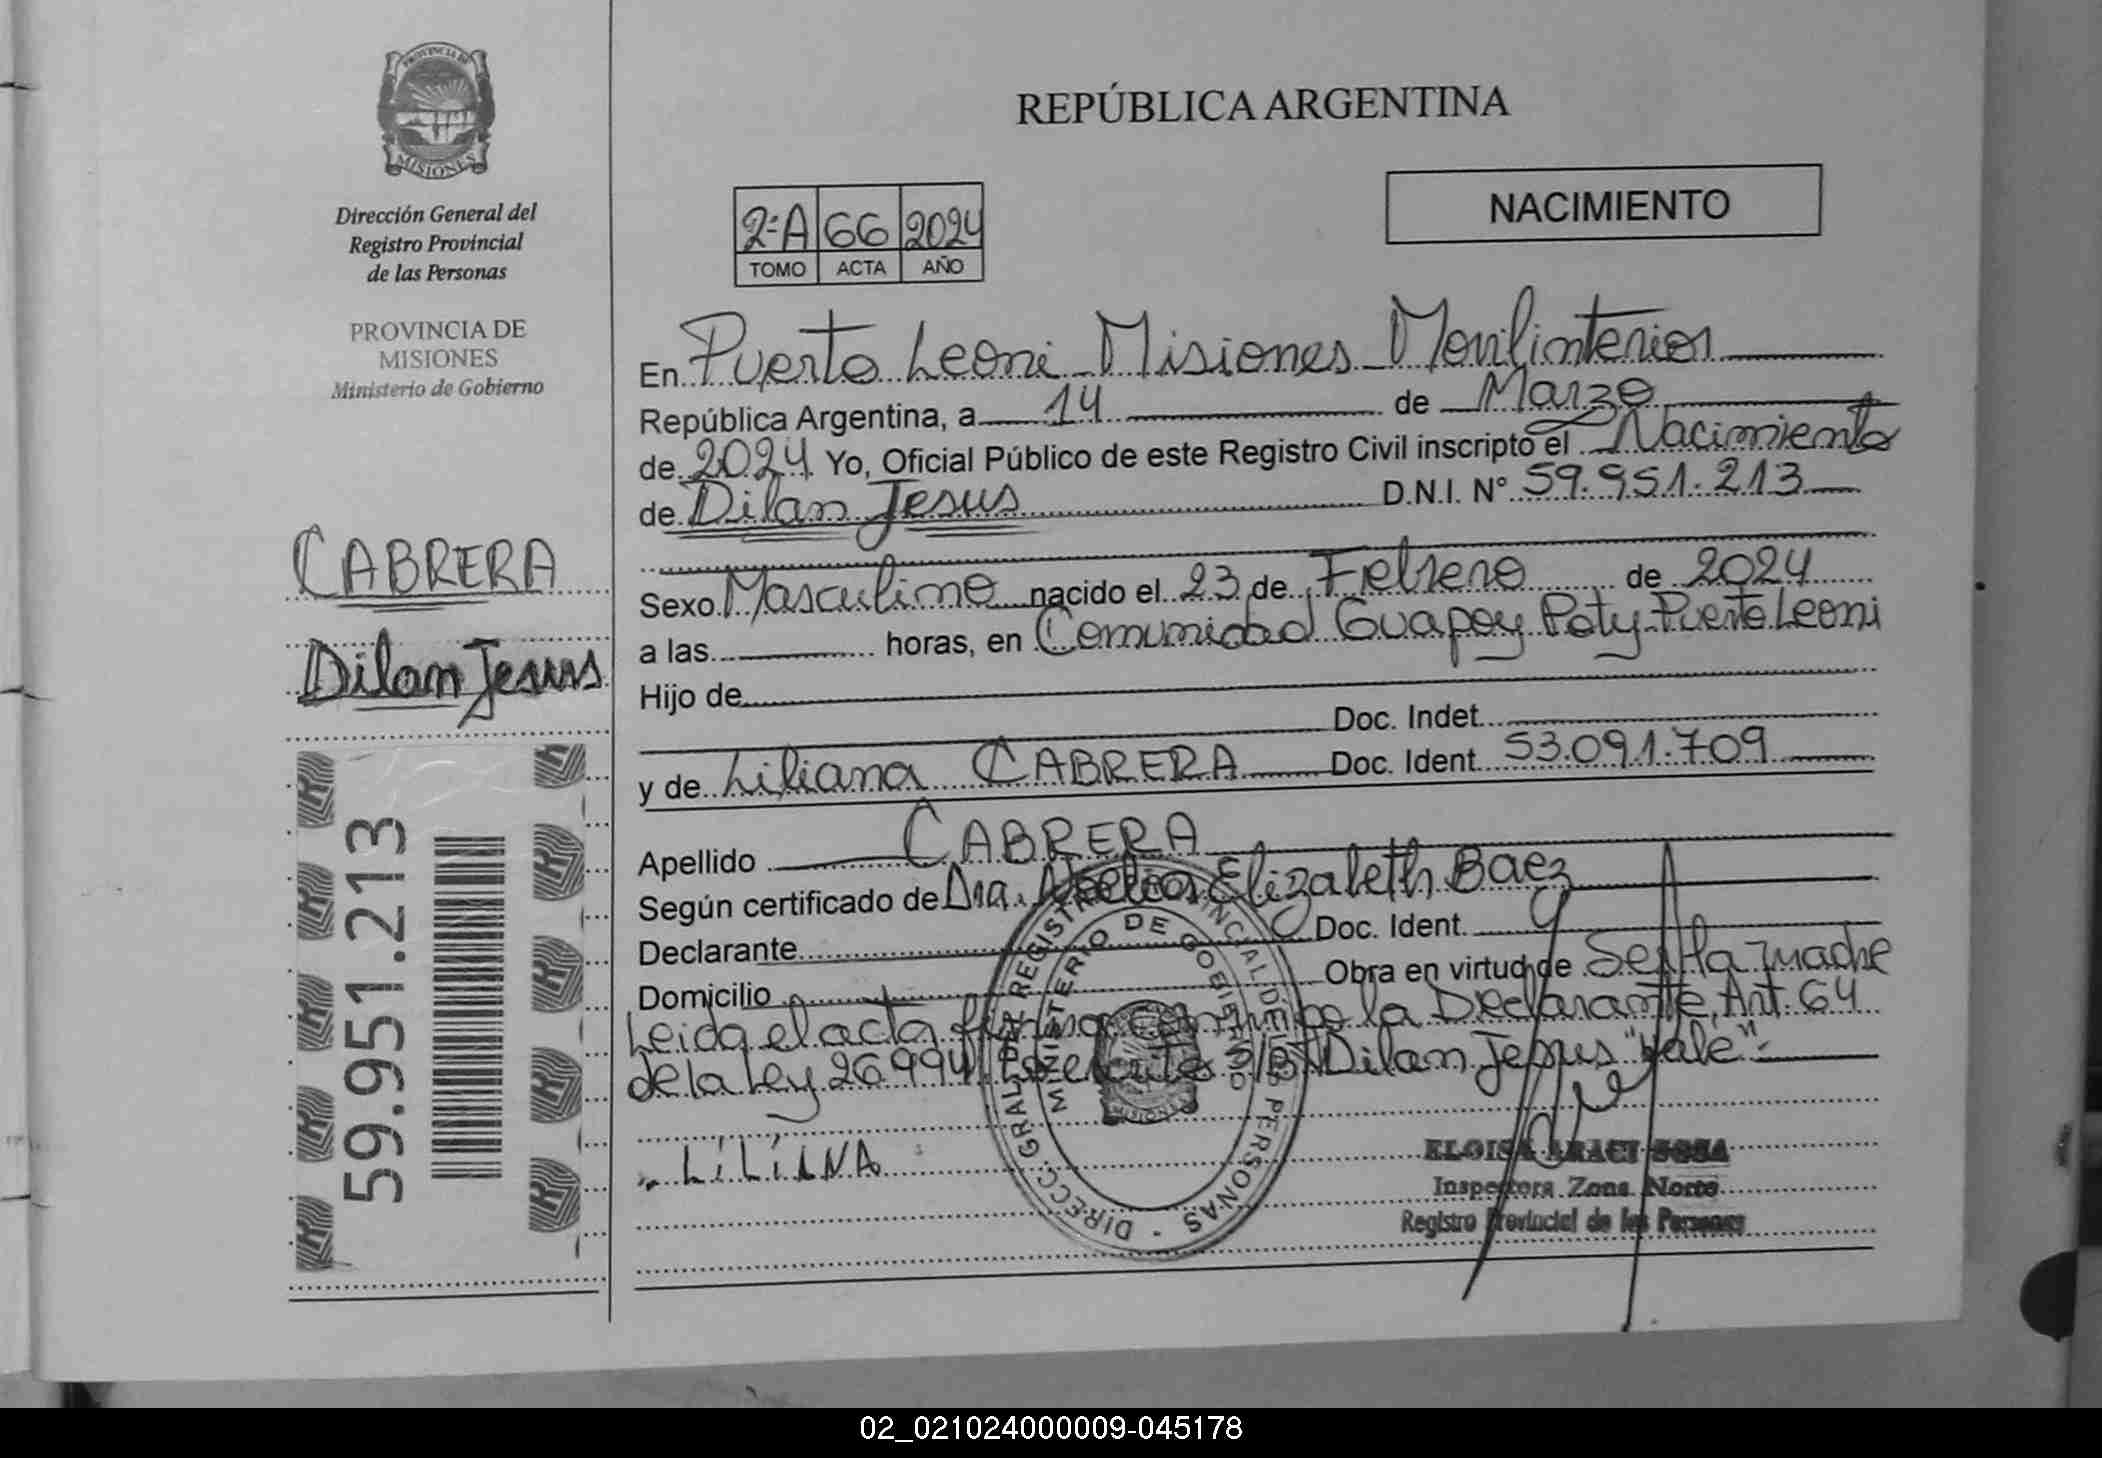 PROVINCIA DE
MISIONES
Dirección General del
Registro Provincial
de las Personas
PROVINCIA DE
MISIONES
Ministerio de Gobierno
CABRERA
Dilan Jesus
59.951.213
REPÚBLICA ARGENTINA
NACIMIENTO
2ºA 66 2024
TOMO ACTA AÑO
En Puerto Leoni Misiones Movilinterior
República Argentina, a 14 de Marzo
de 2024 Yo, Oficial Público de este Registro Civil inscripto el Nacimiento
de Dilan Jesus D.N.I. N° 59.951.213
Sexo Masculino nacido el 23 de Febrero de 2024
a las horas, en Comunidad Guapoy Poty Puerto Leoni
Hijo de
Doc. Indet.
y de Liliana CABRERA Doc. Ident. 53.091.709
Apellido CABRERA
Según certificado de Dra. Elizabeth Baez
Declarante Doc. Ident.
Domicilio Obra en virtud de Ser la madre
Leida el acta firma conmigo la Declarante, Art. 64
de la Ley 26994 S/B Dilan Jesus "Vale"
LiLiANA
DIRECC. GRAL. DEL REGISTRO PROVINCIAL DE LAS PERSONAS
MINISTERIO DE GOBIERNO
MISIONES
ELOISA ARACI SOSA
Inspectora Zona Norte
Registro Provincial de las Personas
02_021024000009-045178